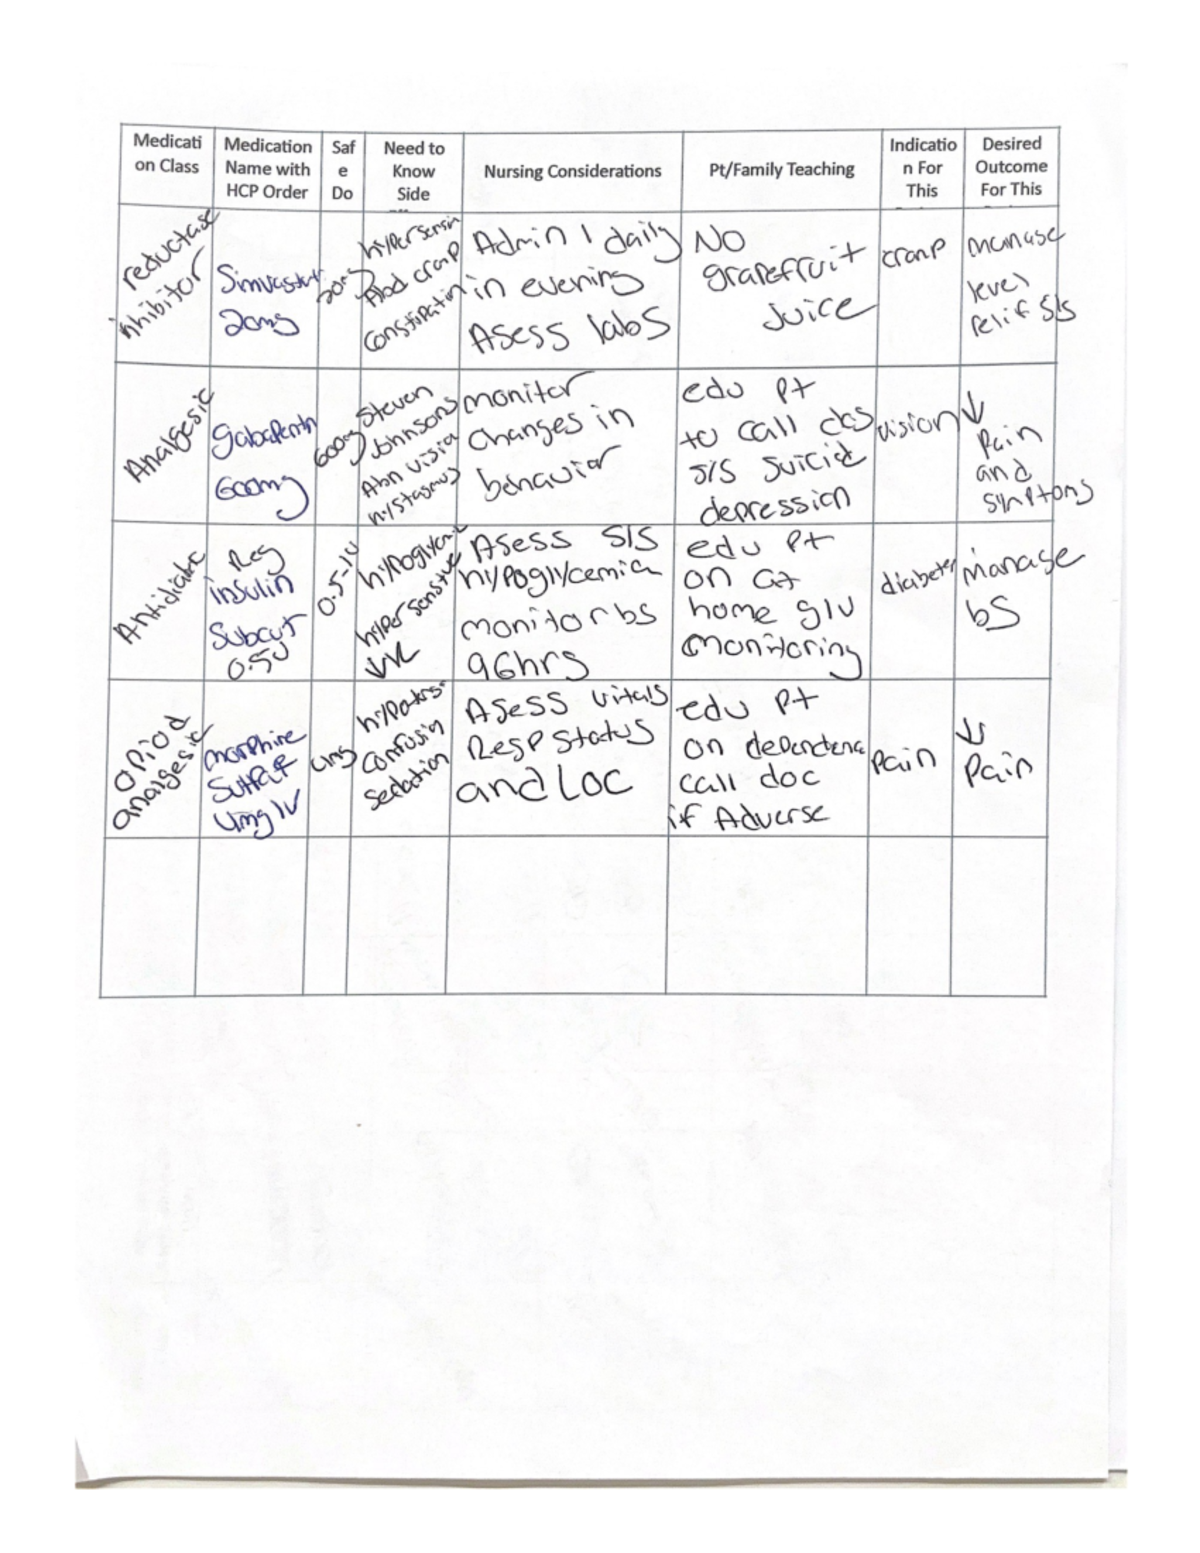 Medicati
on Class
Medication
Name with
HCP Order
Saf
e
Do
Need to
Know
Side
Nursing Considerations
Pt/Family Teaching
Indicatio
n For
This
Desired
Outcome
For This
reductase
inhibitor
20mg
20mg
Abd cramp
Admin 1 daily
in evening
Asess labs
NO
grapefruit
Juice
cramp
manage
level
relif S/s
Analgesic
gabapentin
600mg
600mg
Steven
Johnsons
Abn visia
nystagmus
monitor
changes in
behavior
edu pt
to call
S/S suicid
depression
vision
↓
Pain
and
symptons
Reg
insulin
Subcut
0.5U
hypoglycem
↓VK
Asess S/S
hypoglycemia
monitor bs
q6hrs
edu Pt
on at
home glu
monitoring
diabetes
manage
bS
opiod
analgesic
morphine
4mg IV
4mg
confusin
sedation
Asess vitals
Resp status
and LOC
edu Pt
on dependenc
call doc
if Adverse
Pain
↓
Pain